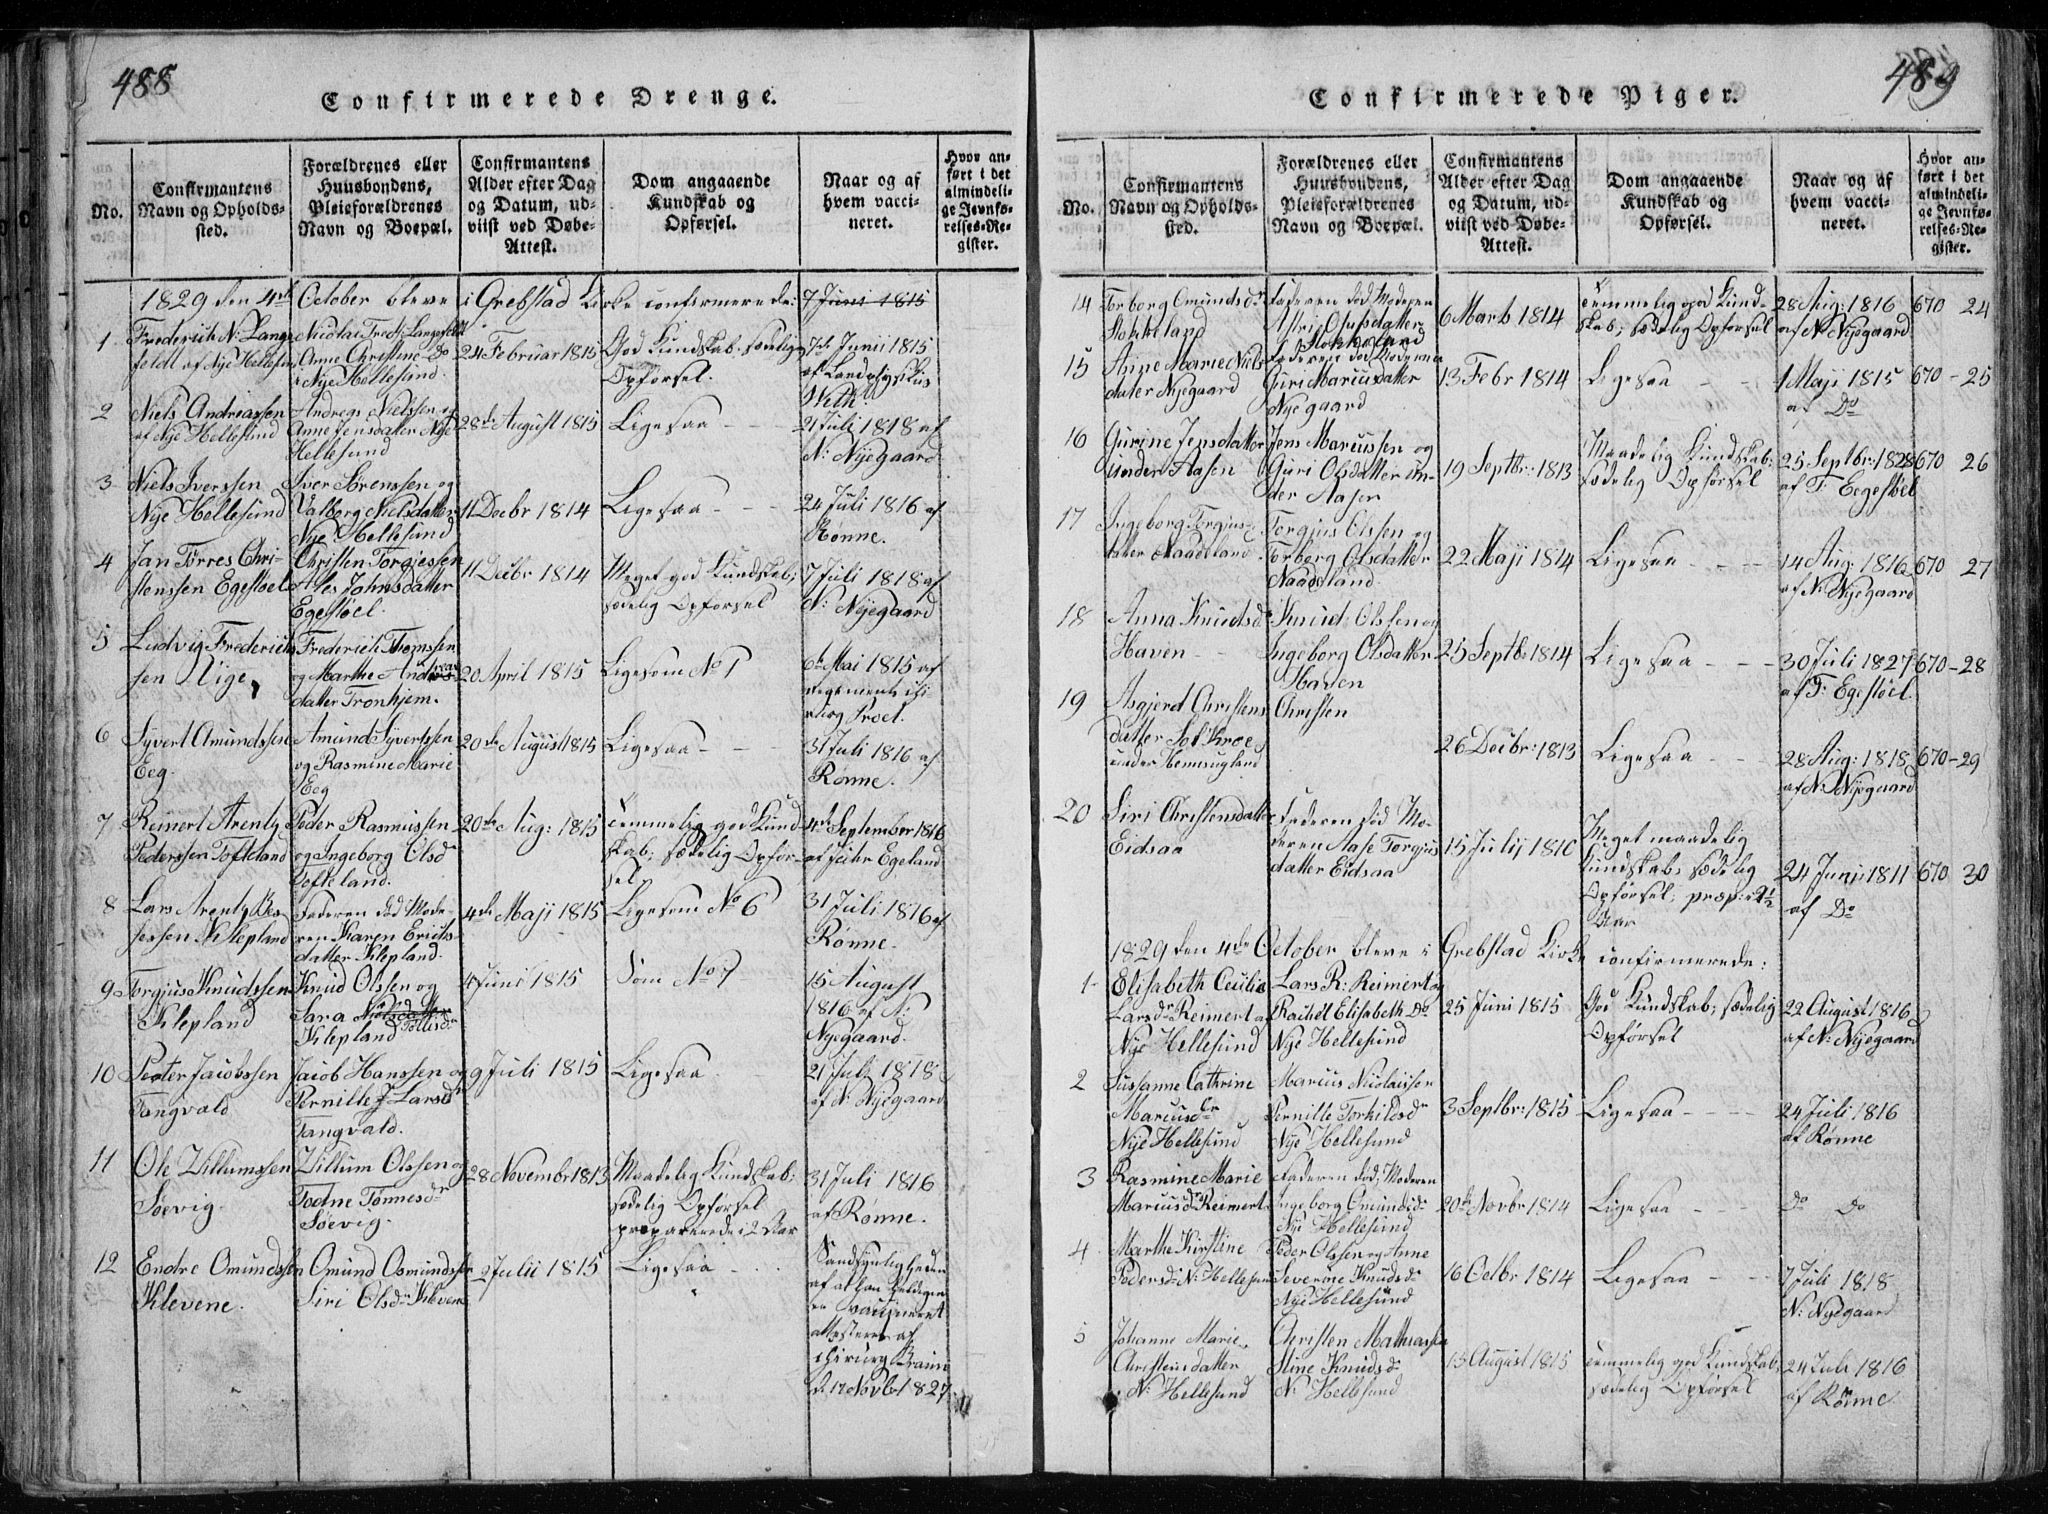 488
Confirmerede Drenge.
No.
Confirmantens Navn og Opholds-sted.
Forældrenes eller Huusbondens, Pleieforældrenes Navn og Boepæl.
Confirmantens Alder efter Dag og Datum, ud-viist ved Døbe-Attest.
Dom angaaende Kundskab og Opførsel.
Naar og af hvem vacci-neret.
Hvor an-ført i det almindeli-ge Jevnfø-relses-Re-gister.
1829 den 4de October bleve i Grebstad Kirke confirmerede: 7 Juni 1815
1 Frederich N: Lange-
feldt af Nye Hellesund
Nicolai Fred: Langefeldt
Anne Christine Do
Nye Hellesund.
24 Februar 1815
God Kundskab. sædelig
Opførsel.
7de Junii 1815
af Landphysikus
Weth.
2 Niels Andreassen
af Nye Hellesund
Andreas Nielssen og
Anne Jensdatter Nye
Hellesund
28de August 1815
Ligesaa
21 Juli 1818 af
N: Nyegaard
3 Niels Iverssen
Nye Hellesund
Iver Sørenssen og
Valborg Nielsdatter
Nye Hellesund
11 Decbr 1814
Ligesaa
24 Juli 1816 af
Rønne.
4 Jan Tørres Chri-
stenssen Egestoel
Christen Torgiessen
Ales Johnsdatter
Egestøel.
11 Decbr 1814
Meget god Kundskab;
sædelig Opførsel
7 Juli 1818 af
N: Nyegaard
5 Ludvig Frederich-
sen Uige
Frederich Thomssen
og Marthe Andreas
datter Tronhjem.
20 April 1815
Ligesom No 1
6te Mai 1815 af
Proel.
6 Syvert Omundssen
Eeg.
Amund Syvertssen
og Rasmine Marie
Eeg
20de August 1815
Ligesaa
31 Juli 1816 af
Rønne.
7 Reinert Arentz
Pederssen Tofteland
Peder Rasmussen
og Ingeborg Olsdr
Tofteland.
20de Aug: 1815
Temmelig god Kund
skab; sædelig Opfør-
sel
4de September 1816
af Peder Egeland
8 Lars Arentz
Klepland
Faderen død Mode-
ren Karen Erichs-
datter Klepland.
4de Maji 1815
Ligesom No 6
31 Juli 1816 af
Rønne.
9 Torgius Knudssen
Klepland
Knud Olssen og
Sara Nielsdatter
Tollisdr
Klepland
4 Juni 1815
Som No 7
15 August
1816 af N:
Nyegaard.
10 Peter Jacobssen
Tangvald
Jacob Hanssen og
Pernille J: Larsdr
Tangvald.
9 Juli 1815
Ligesaa
21 Juli 1818
af N: Nyegaard
11 Ole Villumssen
Søevig.
Villum Olssen og
Todne Tønnesdr
Søevig.
28 November 1813
Maadelig Kundskab;
sædelig Opførsel
præparerede i 2 Aar
31 Juli 1816
af Rønne.
12 Endre Omundssen
Klevene.
Omund Osmundssen
Siri Olsdr Klevene
2 Julii 1815
Ligesaa
Sandsynligheden
af at han heldigen
er vaccineret
attesterer af
chirurg Braun
d. 17 Novbr 1827.
489
Confirmerede Piger.
No.
Confirmantens Navn og Opholds-sted.
Forældrenes eller Huusbondens, Pleieforældrenes Navn og Boepæl.
Confirmantens Alder efter Dag og Datum, ud-viist ved Døbe-Attest.
Dom angaaende Kundskab og Opførsel.
Naar og af hvem vacci-neret.
Hvor an-ført i det almindeli-ge Jevnfø-relses-Re-gister.
14 Torborg Omundsdr
Stokkeland
Faderen død Moderen
Attri Olufsdatter
Stokkeland
6 Marts 1814
Temmelig god Kund-
skab; sædelig Opførsel
28 Aug: 1816
af N: Nyegaard
670 24
15 Anne Marie Niels
datter Nyegaard
Faderen død Moderen
Guri Mariusdatter
Nyegaard
13 Febr 1814
Ligesaa
1 Maji 1815
af Do
670 - 25
16 Gurine Jensdatter
under Aasen
Jens Marcussen og
Guri Olsdatter un-
der Aasen
19 Septbr: 1813
Maadelig Kundskab;
sædelig Opførsel
25 Septbr: 1828
af T: Eegestøel
670 26
17 Ingeborg Torgius-
datter Naadeland
Torgius Olssen og
Torberg Olsdatter
Naadeland
22 Maji 1814
Ligesaa
14 Aug: 1816
af N: Nyegaard
670 27
18 Anna Knudsdr
Haven
Knud Olssen og
Ingeborg Olsdatter
Haven
25 Septbr: 1814
Ligesaa
30 Juli 1827
af T: Egestøel.
670 - 28
19 Asgjerd Christens
datter Solkroe
under
Christen
26 Decbr: 1813
Ligesaa
28 Aug: 1818
af N: Nyegaard
670 - 29
20 Siri Christensdatter
Eidsaa
Faderen død Mo-
deren Aase Torgius
datter Eidsaa
15 Julij 1810
Meget maadelig
Kundskab, sædelig
Opførsel; præp: i 2½
Aar
24 Juni 1811
af Do
670 30
1829 den 4de October bleve i Grebstad Kirke confirmerede:
1 Elisabeth Cecilie
Larsdr Reimert a
Nye Hellesund
Lars R: Reimert og
Rachel Elisabeth Do
Nye Hellesund
25 Juni 1815
God Kundskab; sædelig
Opførsel
22 August 1816
af N: Nyegaard
2 Sussanne Cathrine
Marcusdr
Nye Hellesund
Marcus Nicolaissen
Pernille Torkildsdr
Nye Hellesund
3 Septbr: 1815
Ligesaa
24 Juli 1816
af Rønne
3 Rasmine Marie
Marcusdr Reimert
Faderen død, Moderen
Ingeborg Omundsdr
Nye Hellesund
20de Novbr 1814
Ligesaa
Do Do
4 Marthe Kirstine
Pedersdr N: Hellesund
Peder Olssen og Anne
Severine Knudsdr
Nye Hellesund
16 Octbr 1814
Ligesaa
7 Juli 1818
N: Nyegaard
5 Johanne Marie
Christensdatter
N: Hellesund
Christen Mathiassen
Stine Knudsdr
N: Hellesund
13 August 1815
Temmelig god Kundskab;
sædelig Opførsel
24 Juli 1816
af Rønne